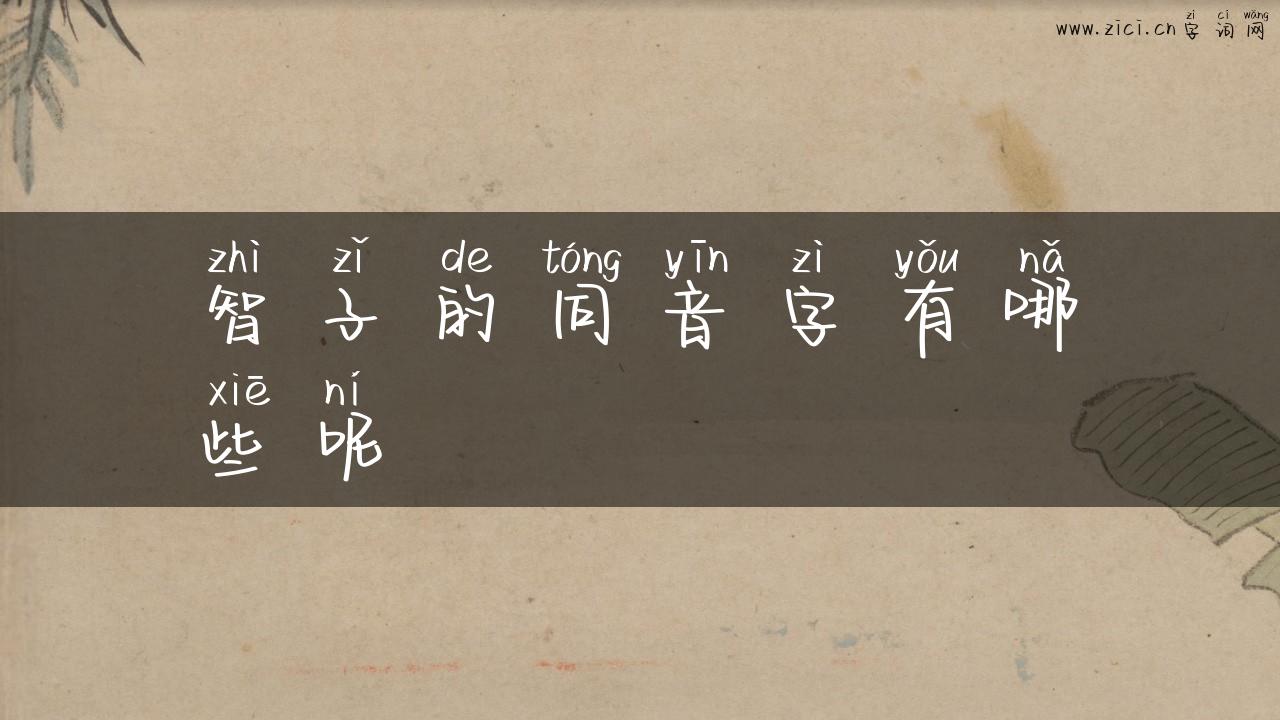 zì cí wǎng
www.zici.cn 字词网
zhì zǐ de tóng yīn zì yǒu nǎ
智子的同音字有哪
xiē ní
些呢